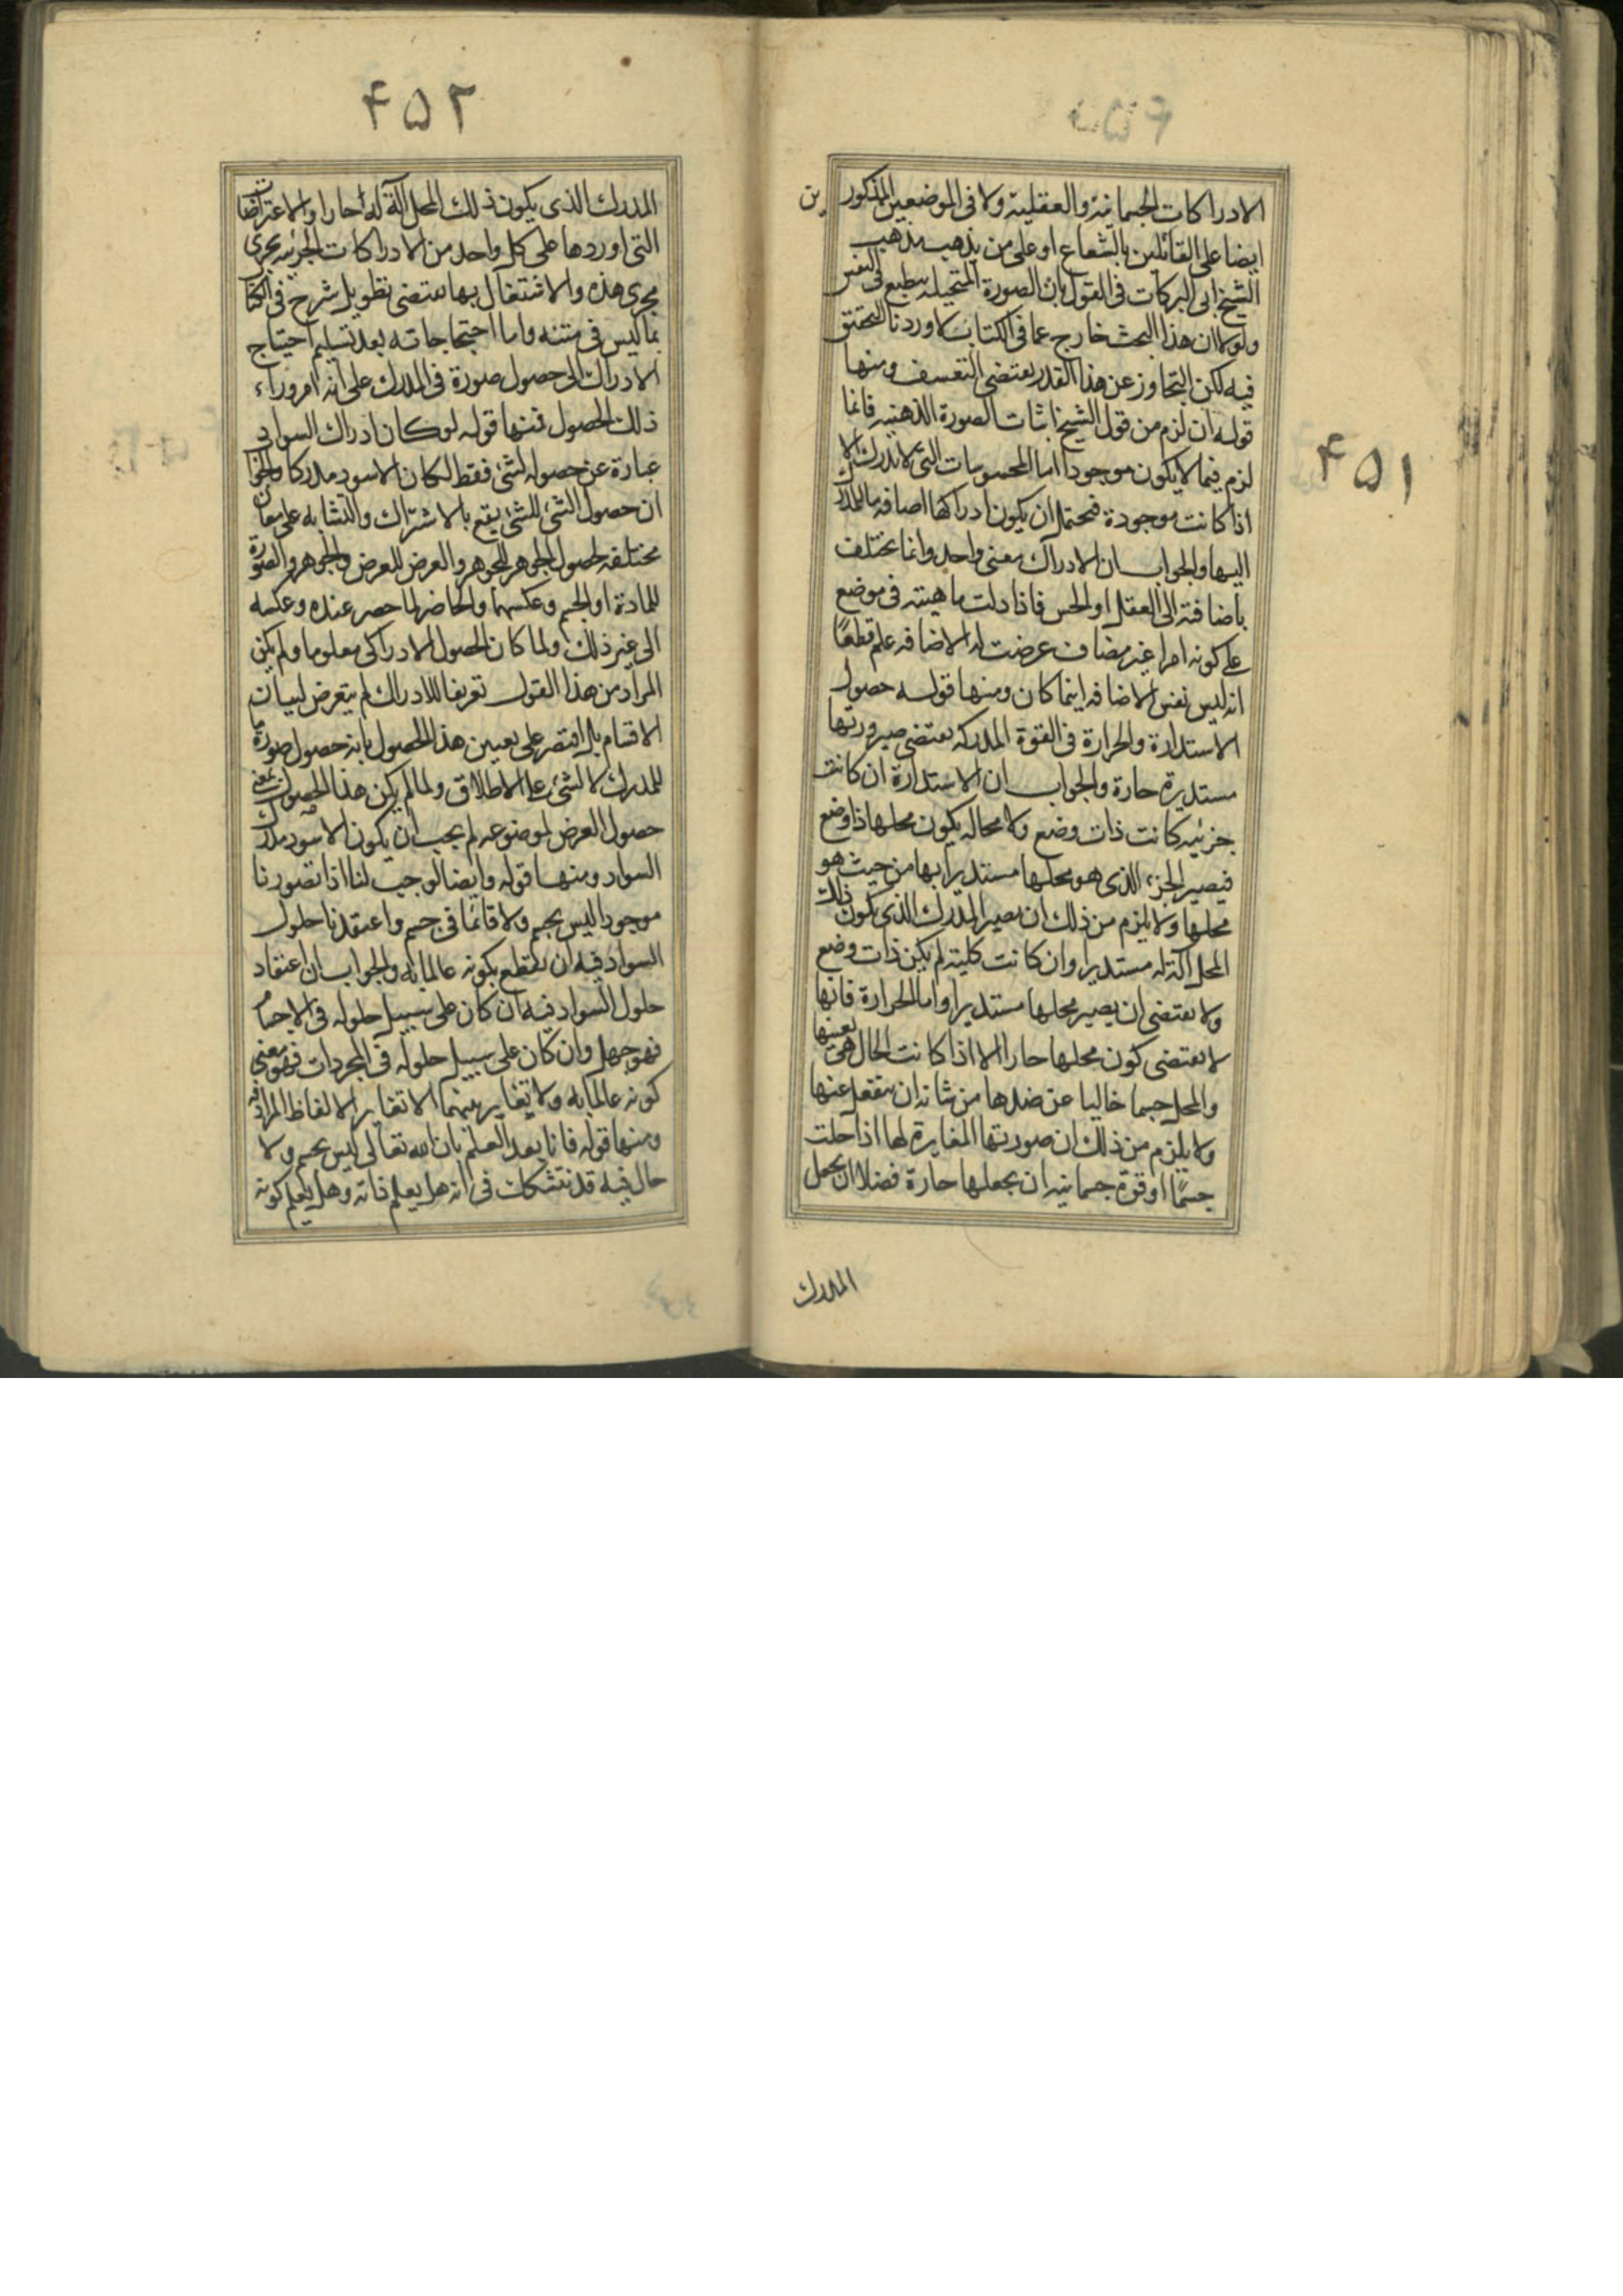 ۴۵۱
الادراكات الجسمانية والعقلية ولا فى الموضعين المذكورين
ايضا على القائلين بالشعاع او على من يذهب مذهب
الشيخ ابى البركات فى القول بان الصورة المتخيلة ينطبع فى النفس
ولولا ان هذا البحث خارج عما فى الكتاب لاوردنا التحقيق
فيه لكن التجاوز عن هذا القدر يقتضى التعسف ومنها
قوله ان لزم من قول الشيخ اثبات الصورة الذهنية فانما
لزم فيما لا يكون موجودا اما المحسوسات التى لا تدرك الا
اذا كانت موجودة فيحتمل ان يكون ادراكها اضافة ما للمدرك
اليها والجواب ان الادراك معنى واحد وانما يختلف
باضافته الى العقل او الحس فاذا دلت ماهيته فى موضع
على كونه امرا غير مضاف عرضت له الاضافة علم قطعًا
انه ليس نفس الاضافة اينما كان ومنها قوله حصول
الاستدارة والحرارة فى القوة المدركة يقتضى صيرورتها
مستديرة حارة والجواب ان الاستدارة ان كانت
جزئية كانت ذات وضع ولا محالة يكون محلها ذا وضع
فيصير الجزء الذى هو محلها مستديرا بها من حيث هو
محلها ولا يلزم من ذلك ان يصير المدرك الذى يكون ذلك
المحل آلة له مستديرا وان كانت كلية لم يكن ذات وضع
ولا يقتضى ان يصير محلها مستديرا واما الحرارة فانها
لا يقتضى كون محلها حارا الا اذا كانت الحال هى بعينها
والمحل جسما خاليا عن ضدها من شانه ان ينفعل عنها
ولا يلزم من ذلك ان صورتها المغايرة لها اذا حلت
جسمًا او قوة جسمانية ان يجعلها حارة فضلا ان يجعل
المدرك
۴۵۲
المدرك الذى يكون ذلك المحل آلة له حارا والاعتراضات
التى اوردها على كل واحد من الادراكات الجزئية يجرى
مجرى هذه والاشتغال بها يقتضى تطويل شرح فى الكتاب
بما ليس فى متنه واما احتجاجاته بعد تسليم احتياج
الادراك الى حصول صورة فى المدرك على انه امر وراء
ذلك الحصول فمنها قوله لو كان ادراك السواد
عبارة عن حصوله لشئ فقط لكان الاسود مدركا والجواب
ان حصول الشئ للشئ يقع بالاشتراك والتشابه على معان
مختلفة لحصول الجوهر للجوهر والعرض للعرض والجوهر والصورة
للمادة او الجسم وعكسهما والحاضر لما حضر عنده وعكسه
الى غير ذلك ولما كان الحصول الادراكى معلوما ولم يكن
المراد من هذا القول تعريفا للادراك لم يتعرض لبيان
الاقسام بل اقتصر على تعيين هذا الحصول بانه حصول صورة ما
للمدرك لا لشئ على الاطلاق ولما لم يكن هذا الحصول بمعنى
حصول العرض لموضوعه لم يجب ان يكون الاسود مدرك
السواد ومنها قوله وايضا لوجب لنا اذا تصورنا
موجودا ليس بجسم ولا قائما فى جسم واعتقدنا حلول
السواد فيه ان نقطع بكونه عالما به والجواب ان اعتقاد
حلول السواد فيه ان كان على سبيل حلوله فى الاجسام
فهو جهل وان كان على سبيل حلوله فى المجردات فهو معنى
كونه عالما به ولا تغاير بينهما الا تغاير الالفاظ المرادفة
ومنها قوله فانا بعد العلم بان الله تعالى ليس بجسم ولا
حال فيه قد نتشكك فى انه هل يعلم ذاته وهل يعلم كونه